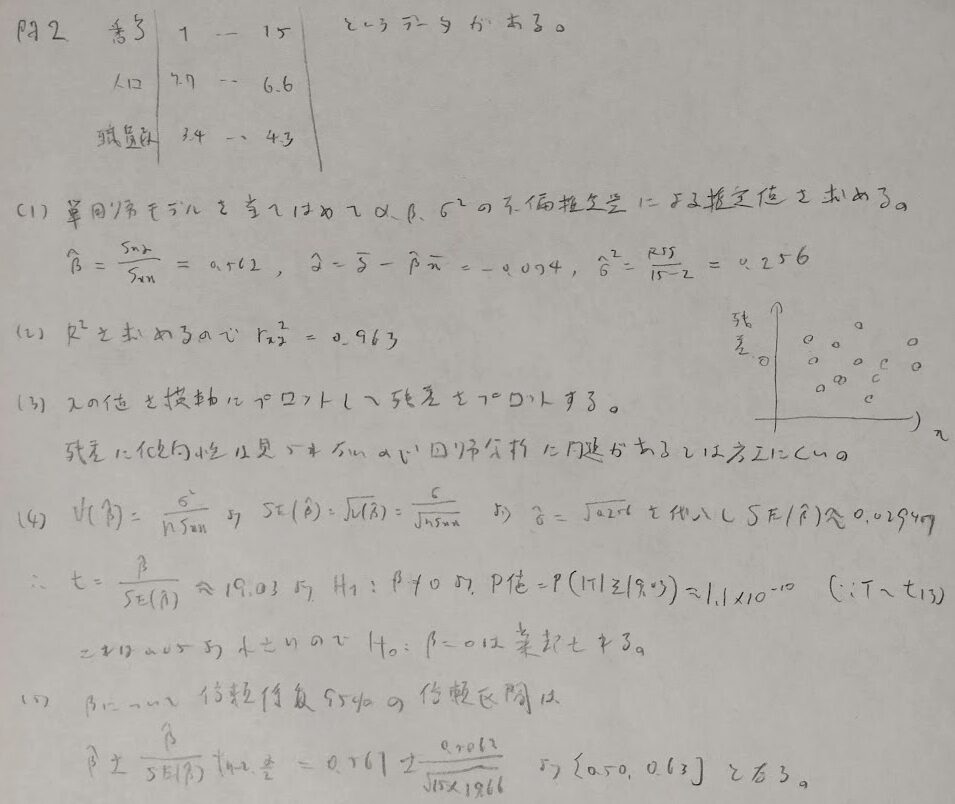 問2 番号 1 … 15 というデータがある。
人口 7.7 … 6.6
職員数 3.4 … 4.3
(1) 単回帰モデルを当てはめて α, β, σ² の不偏推定量による推定値を求める。
β̂ = Sxy/Sxx = 0.562, α̂ = ȳ − β̂x̄ = −0.074, σ̂² = RSS/15−2 = 0.256
(2) R² を求めるので rxy² = 0.963
(3) xの値を横軸にプロットして残差をプロットする。
残差 0 x
残差に傾向性は見られないので回帰分析に問題があるとは言えにくい。
(4) V(β̂) = σ²/nSxx より SE(β̂) = √V(β̂) = σ/√nSxx より σ̂ = √0.256 を代入し SE(β̂) ≈ 0.02947
∴ t = β̂/SE(β̂) ≈ 19.03 より H₁: β ≠ 0 より P値 = P(|T| ≥ 19.03) ≈ 1.1×10⁻¹⁰ (∵ T ~ t13)
これは 0.05 より小さいので H₀: β = 0 は棄却される。
(5) βについて信頼係数95%の信頼区間は
β̂ ± β̂/SE(β̂) tn-2, α/2 = 0.561 ± /√15× より [0.50, 0.63] となる。